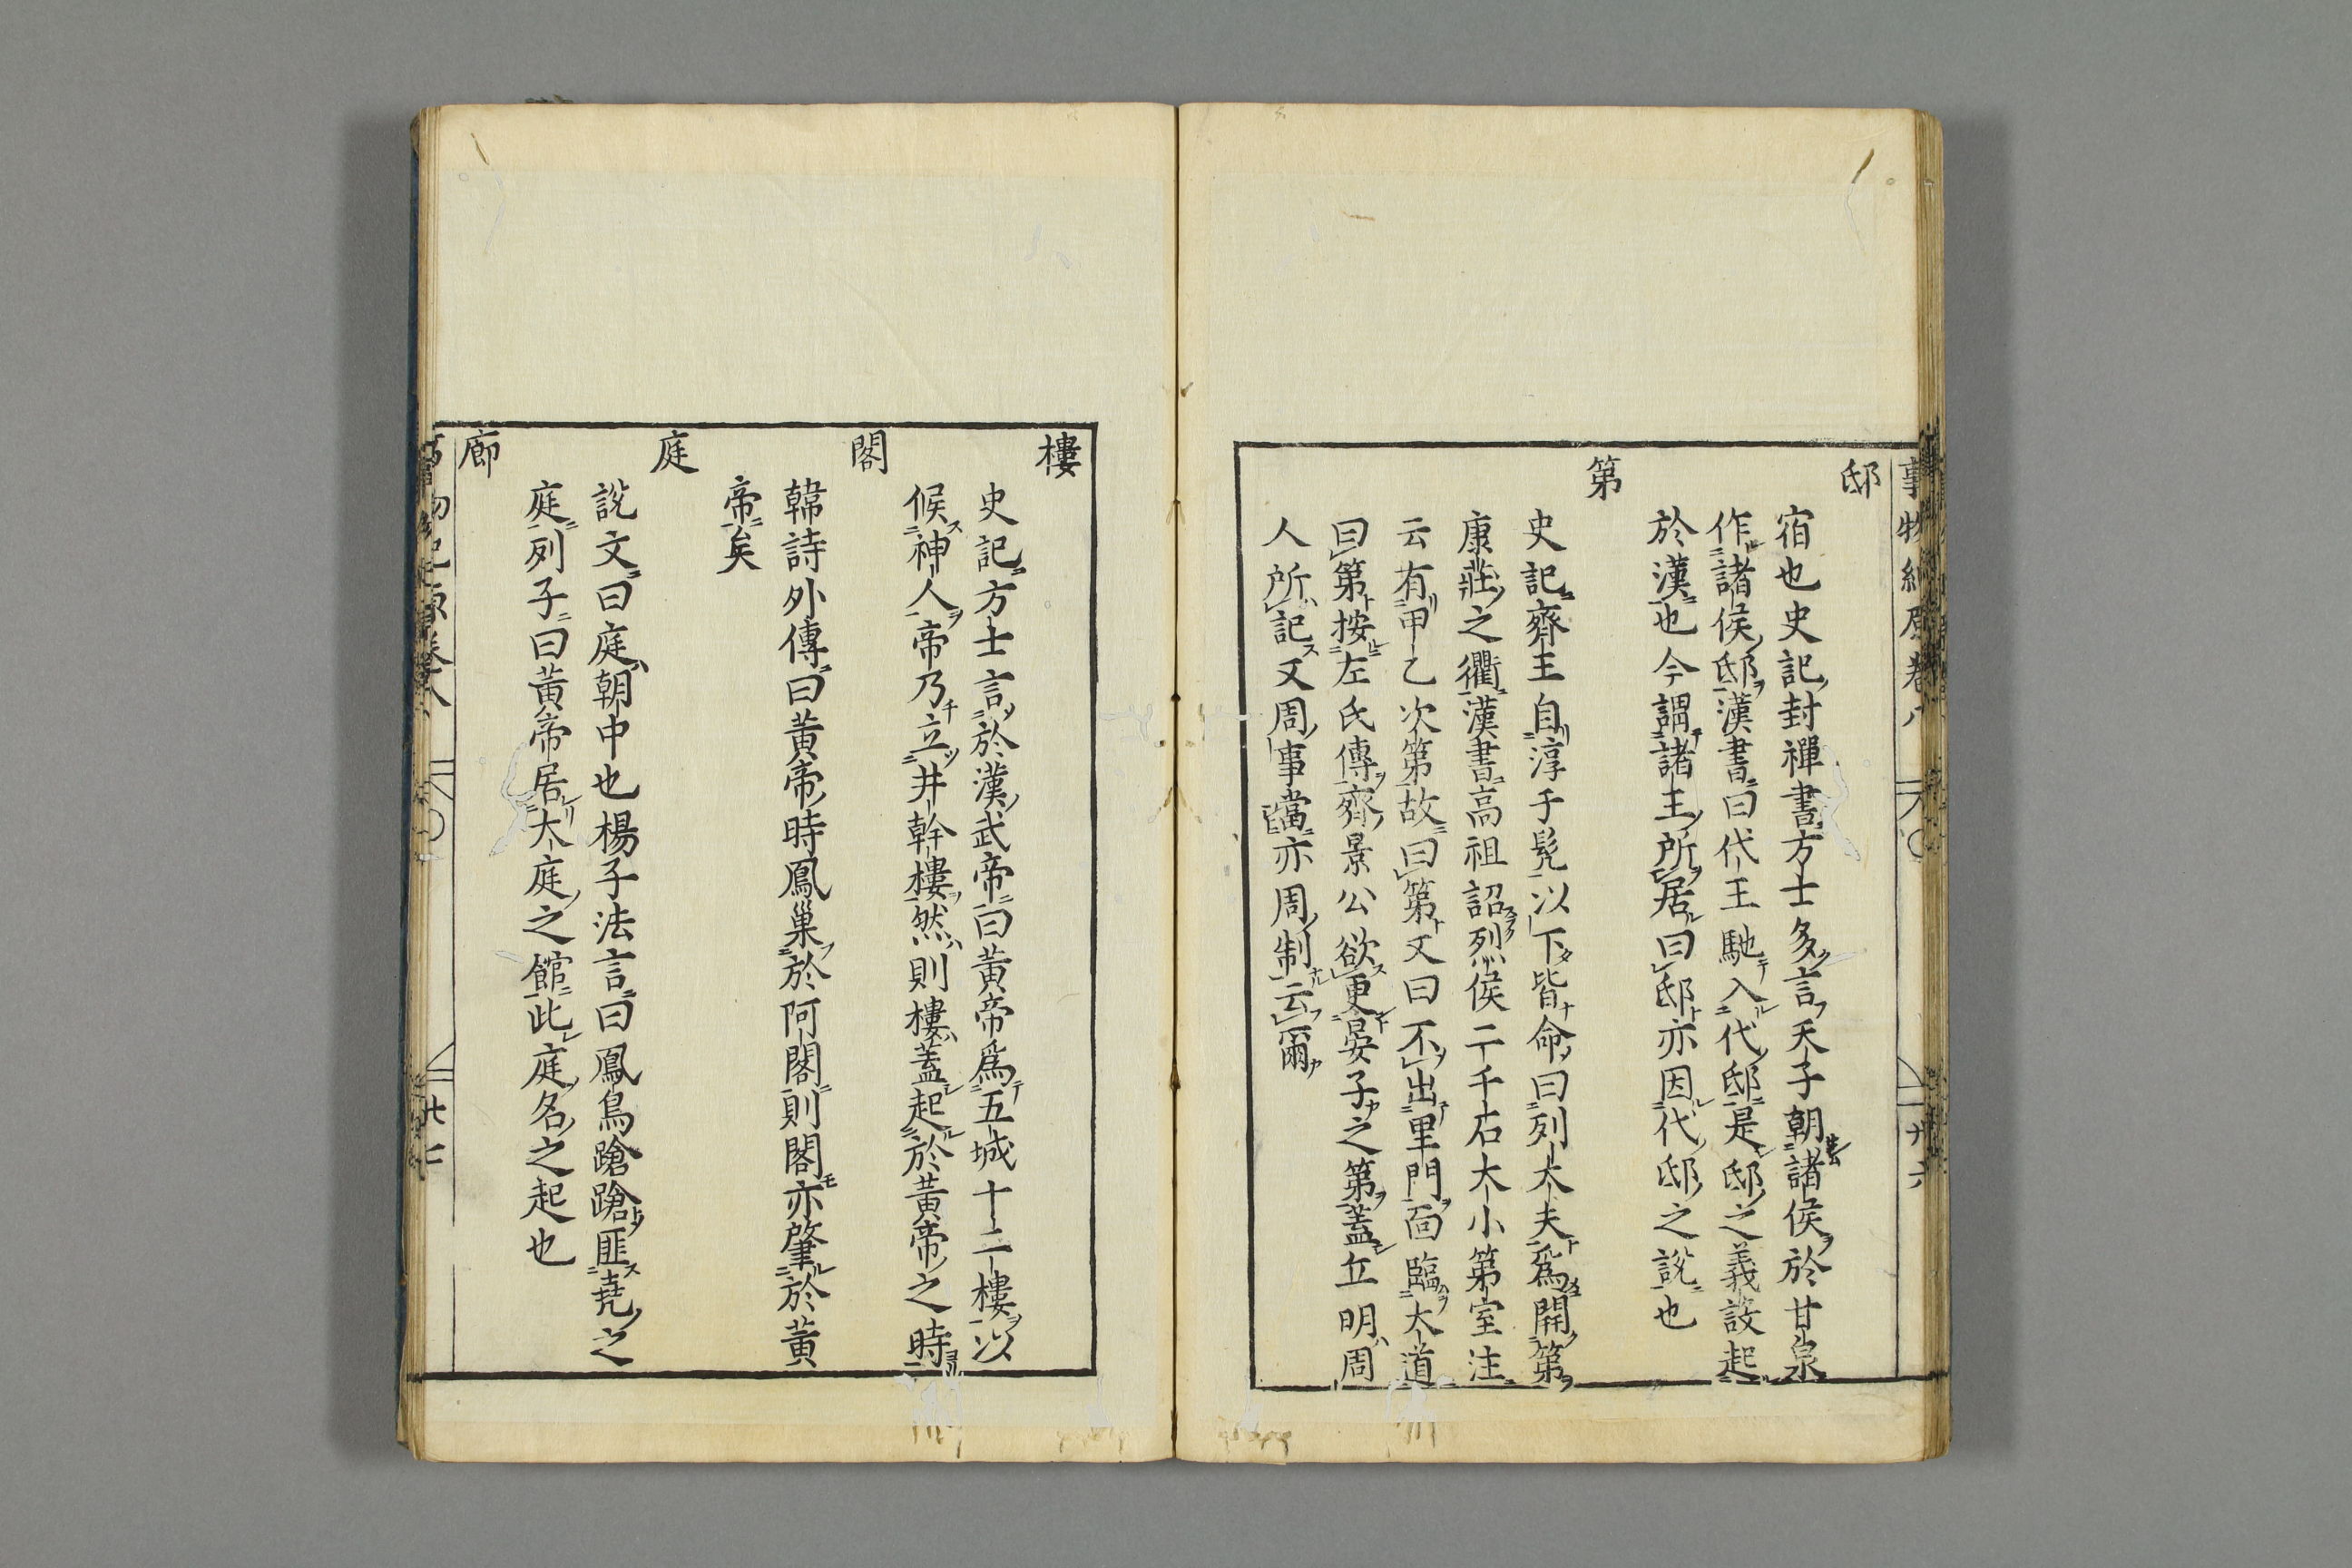 事物紀原卷八
廿六
邸
宿也史記封禪書方士多言天子朝諸侯於甘泉
作諸侯邸漢書曰代王馳入代邸是邸之義設起
於漢也今謂諸王所居曰邸亦因代邸之說也
第
史記齊王自淳于髡以下皆命曰列大夫爲開第
康莊之衢漢書高祖詔烈侯二千石大小第室注
云有甲乙次第故曰第又曰不出里門面臨大道
曰第按左氏傳齊景公欲更晏子之第蓋丘明周
人所記又周事當亦周制云爾
樓
史記方士言於漢武帝曰黃帝爲五城十二樓以
候神人帝乃立井幹樓然則樓蓋起於黃帝之時
閣
韓詩外傳曰黃帝時鳳巢於阿閣則閣亦肇於黃
帝矣
庭
說文曰庭朝中也楊子法言曰鳳鳥蹌蹌匪堯之
庭列子曰黃帝居大庭之館此庭名之起也
廊